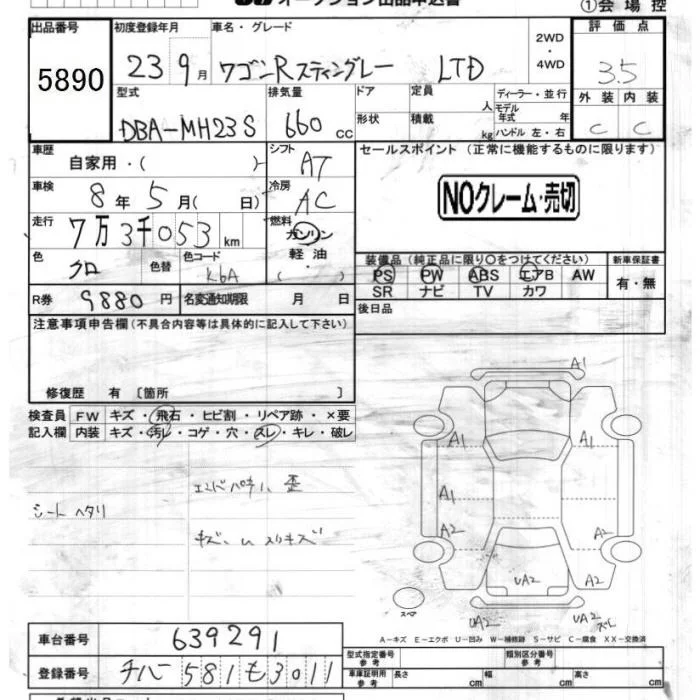 オークション出品申込書
①会場控
出品番号 5890
初度登録年月 23 9月
車名・グレード ワゴンRスティングレー LTD
2WD・4WD
評価点 3.5
外装 C 内装 C
型式 DBA-MH23S
排気量 660 cc
ドア 形状
定員 人
積載 kg
ディーラー・並行
モデル年式 年
ハンドル 左・右
車歴 自家用・( )
シフト AT
セールスポイント (正常に機能するものに限ります)
NOクレーム・売切
車検 8年 5月( 日)
冷房 AC
走行 7万3千053km
燃料 ガソリン 軽油・( )
色 クロ 色替
色コード
装備品(純正品に限り〇をつけてください)
PS PW ABS エアB AW
SR ナビ TV カワ
新車保証書 有・無
R券 9880円
名変通知期限 月 日
後日品
注意事項申告欄(不具合内容等は具体的に記入して下さい)
修復歴 有 〔箇所 〕
検査員記入欄
FW キズ・飛石・ヒビ割・リペア跡・×要
内装 キズ・汚レ・コゲ・穴・スレ・キレ・破レ
シート ヘタリ
歪
A1
A1
A1
A1
A2
A2
UA2
A2
スペア
UA2
UA2
A-キズ E-エクボ U-凹み W-補修跡 S-サビ C-腐食 XX-交換済
車台番号 639291
登録番号 チバ 581 も 3011
型式指定番号 参考
類別区分番号 参考
車庫証明用 参考
長さ cm
幅 cm
高さ cm